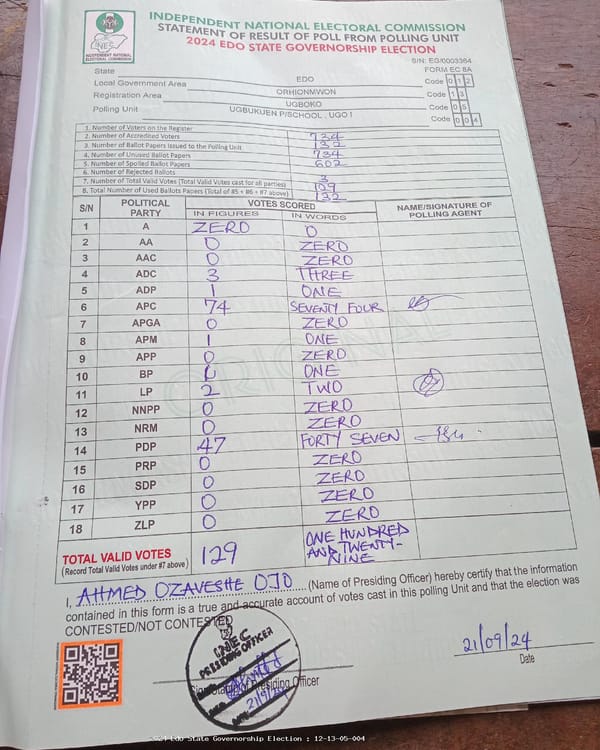 INDEPENDENT NATIONAL ELECTORAL COMMISSION
STATEMENT OF RESULT OF POLL FROM POLLING UNIT
2024 EDO STATE GOVERNORSHIP ELECTION
INEC
INDEPENDENT NATIONAL ELECTORAL COMMISSION
S/N: EG/0003364
FORM EC 8A
State EDO Code 012
Local Government Area ORHIONMWON Code 13
Registration Area UGBOKO Code 05
Polling Unit UGBUKUEN P/SCHOOL, UGO I Code 004
1. Number of Voters on the Register 734
2. Number of Accredited Voters 132
3. Number of Ballot Papers Issued to the Polling Unit 734
4. Number of Unused Ballot Papers 602
5. Number of Spoiled Ballot Papers
6. Number of Rejected Ballots 3
7. Number of Total Valid Votes (Total Valid Votes cast for all parties)
8. Total Number of Used Ballots Papers (Total of #5 + #6 + #7 above) 132
S/N POLITICAL PARTY VOTES SCORED NAME/SIGNATURE OF POLLING AGENT
IN FIGURES IN WORDS
1 A ZERO 0
2 AA 0 ZERO
3 AAC 0 ZERO
4 ADC 3 THREE
5 ADP 1 ONE
6 APC 74 SEVENTY FOUR
7 APGA 0 ZERO
8 APM 1 ONE
9 APP 0 ZERO
10 BP ONE
11 LP 2 TWO
12 NNPP 0 ZERO
13 NRM 0 ZERO
14 PDP 47 FORTY SEVEN
15 PRP 0 ZERO
16 SDP 0 ZERO
17 YPP 0 ZERO
18 ZLP 0 ZERO
TOTAL VALID VOTES 129 ONE HUNDRED AND TWENTY-NINE
(Record Total Valid Votes under #7 above)
I, AHMED OZAVESHE OJO (Name of Presiding Officer) hereby certify that the information
contained in this form is a true and accurate account of votes cast in this polling Unit and that the election was
CONTESTED/NOT CONTESTED
INEC
PRESIDING OFFICER
21/09/24
Presiding Officer
Date
2024 Edo State Governorship Election : 12-13-05-004